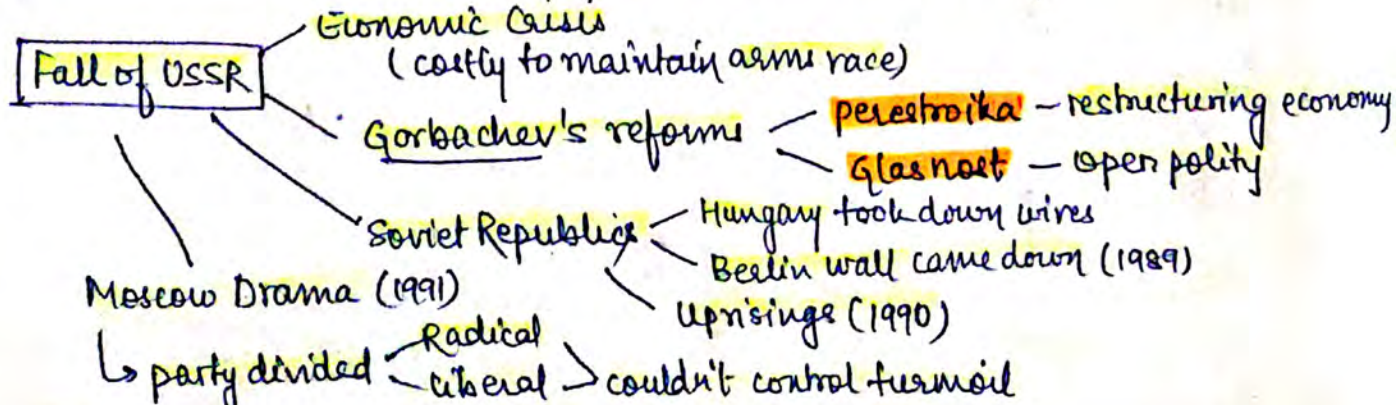 Economic Crisis
(costly to maintain arms race)
Fall of USSR
Gorbachev's reforms
perestroika – restructuring economy
Glasnost – open polity
Soviet Republics
Hungary took down wires
Berlin wall came down (1989)
Uprisings (1990)
Moscow Drama (1991)
↳ party divided
Radical
Liberal
couldn't control turmoil